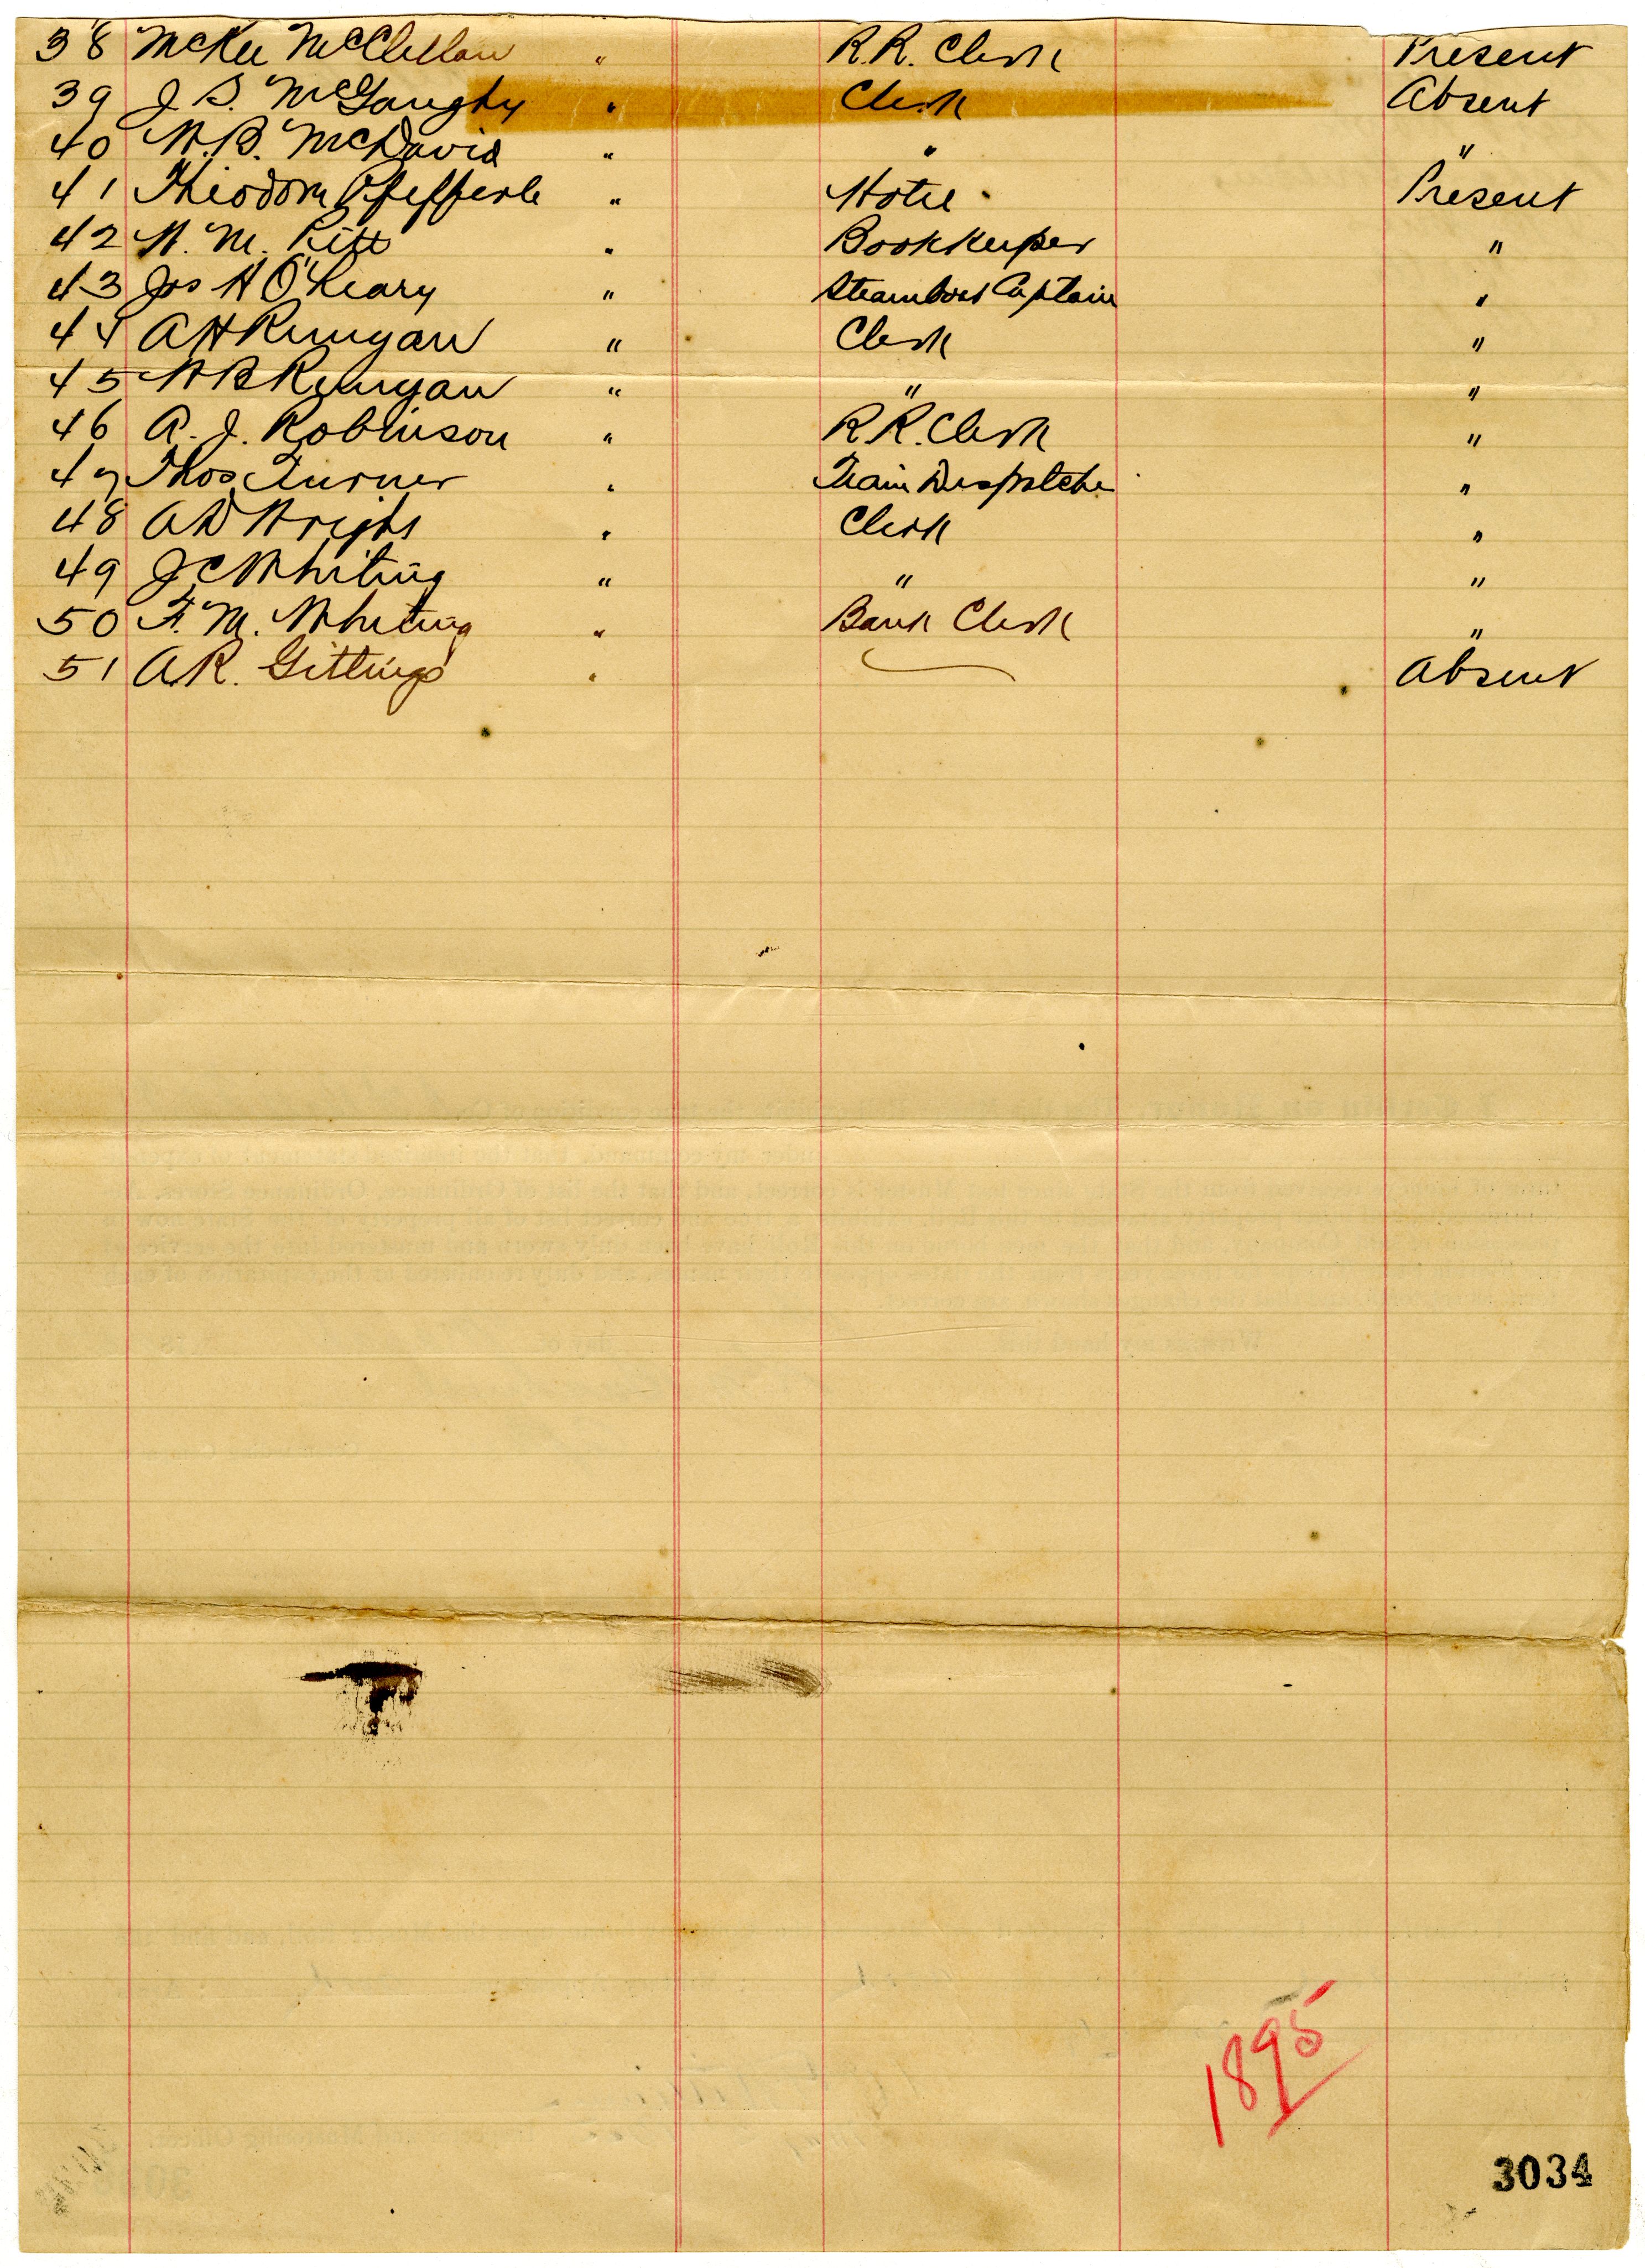 38 McKee McClellan " R.R. Clerk Present
39 J. S. McGaughy " Clerk Absent
40 W.B. McDavid " " "
41 Theodore Pfefferle " Hotel Present
42 W. M. Pitt " Bookkeeper "
43 Jos H O'Leary " Steamboat Captain "
44 A H Runyan " Clerk "
45 W B Runyan " " "
46 A. J. Robinson " R.R. Clerk "
47 Thos Turner " Train Despatcher "
48 A D Wright " Clerk "
49 J C Whiting " " "
50 F. M. Whiting " Bank Clerk "
51 A.R. Gittings " Absent
1895
3034